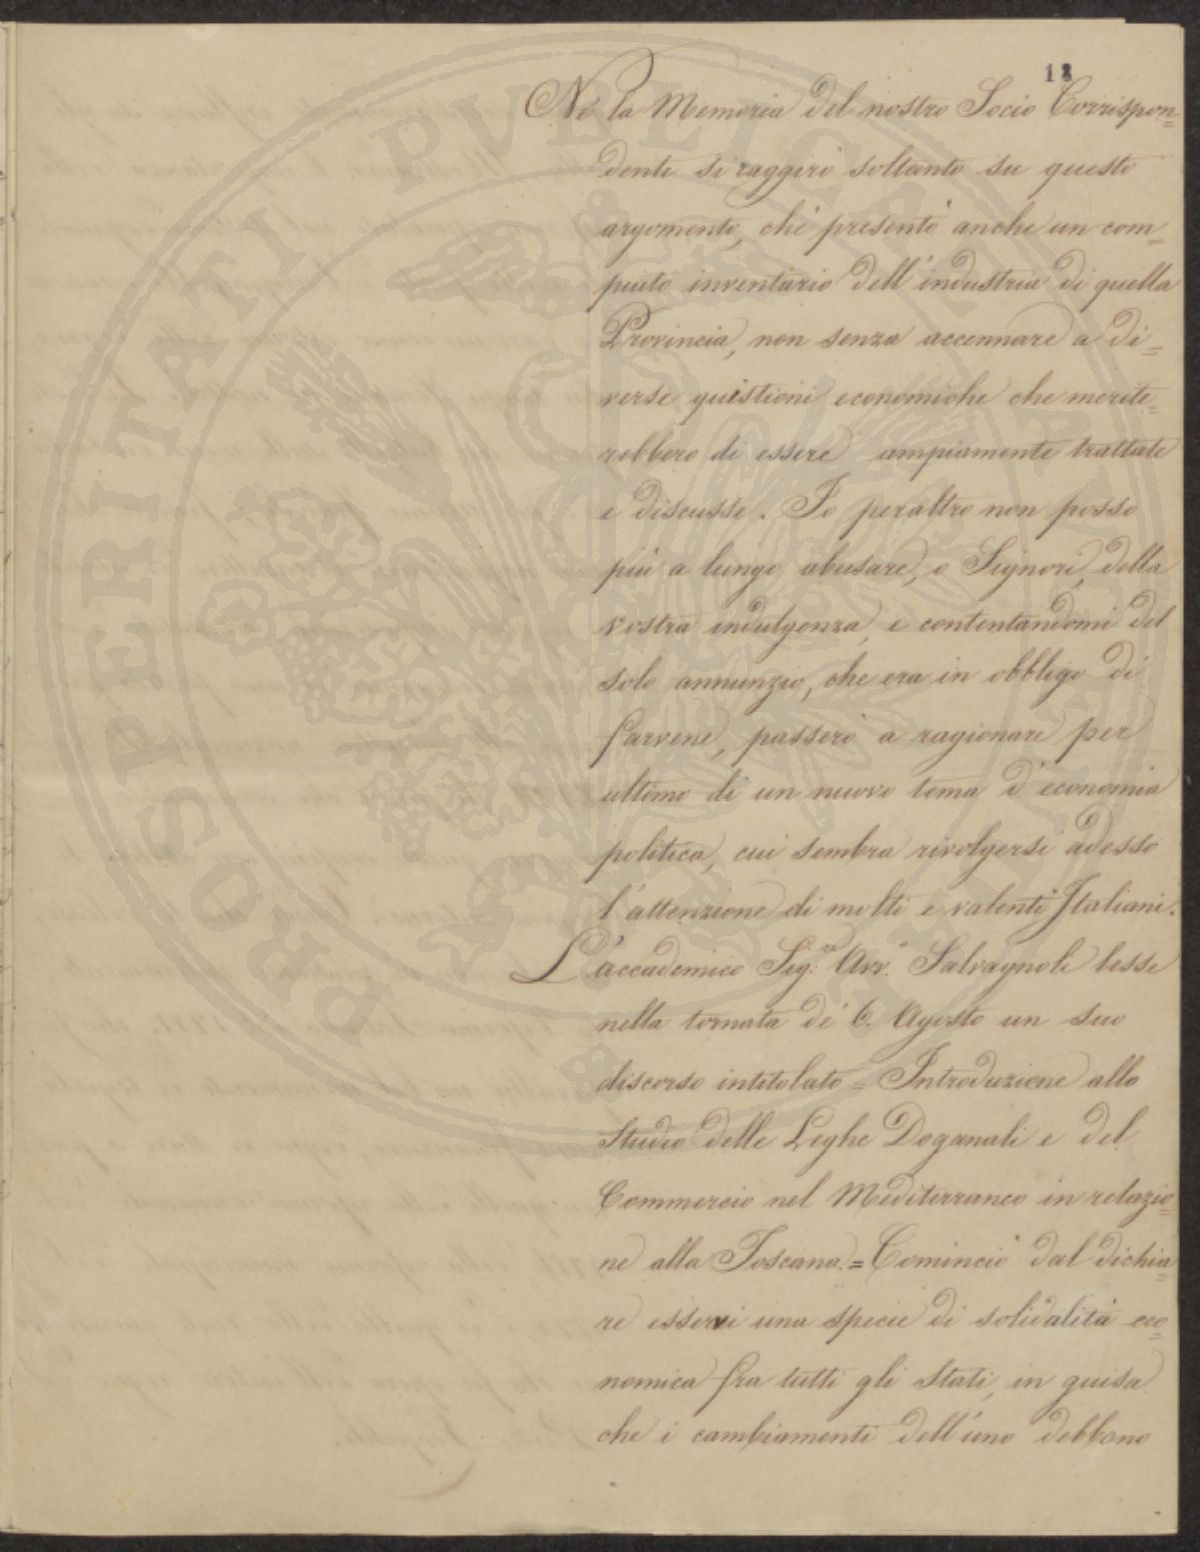 12
Nè la Memoria del nostro Socio Corrispon=
dente si raggirò soltanto su questo
argomento, chè presentò anche un com=
piuto inventario dell'industria di quella
Provincia, non senza accennare a di=
verse quistioni economiche che merite=
rebbero di essere ampiamente trattate
e discusse. Io peraltro non posso
più a lungo abusare, o Signori, della
vostra indulgenza, e contentandomi del
solo annunzio, che era in obbligo di
farvene, passerò a ragionare per
ultimo di un nuovo tema d'economia
politica, cui sembra rivolgersi adesso
l'attenzione di molti e valenti Italiani.
L'accademico Sig.re Avv.o Salvagnoli lesse
nella tornata de' 6. Agosto un suo
discorso intitolato = Introduzione allo
Studio delle Leghe Doganali e del
Commercio nel Mediterraneo in relazio=
ne alla Toscana. = Cominciò dal dichia=
re esservi una specie di solidalità eco=
nomica fra tutti gli Stati, in guisa
che i cambiamenti dell'uno debbono
PROSPERITATI PUBLICAE AUGENDAE